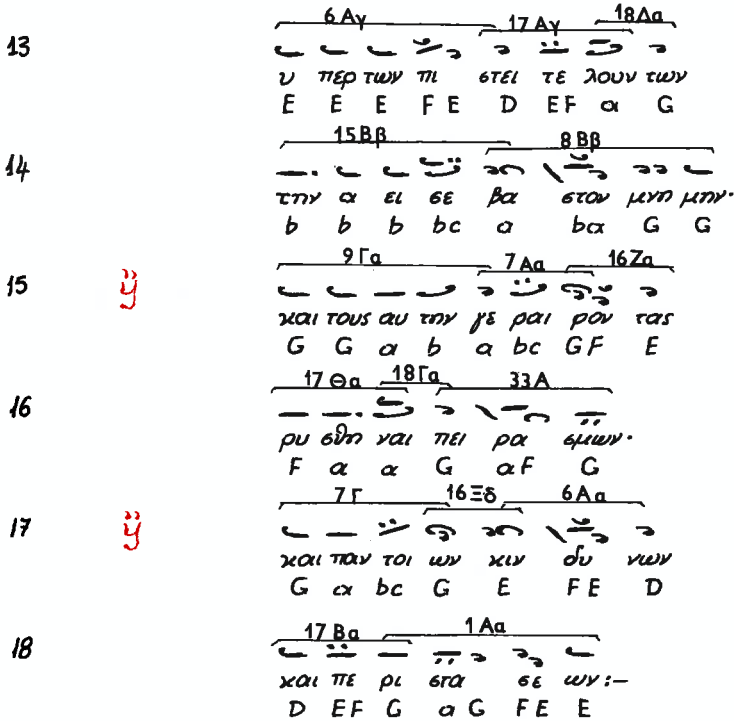 6 Αγ 17 Αγ 18Δα
13
υ περ των πι στει τε λουν των
E E E F E D E F α G
15 Ββ 8 Ββ
14
την α ει σε βα στον μνη μην·
b b b bc a bα G G
9 Γα 7 Αα 16 Ζα
15 ӱ
και τους αυ την γε ραι ρον τας
G G α b a bc G F E
17 Θα 18 Γα 33 Α
16
ρυ σθη ναι πει ρα σμων·
F α α G αF G
7 Γ 16 Ξδ 6 Αα
17 ӱ
και παν τοι ων κιν δυ νων
G α bc G E F E D
17 Βα 1 Αα
18
και πε ρι στα σε ων :–
D E F G α G F E E